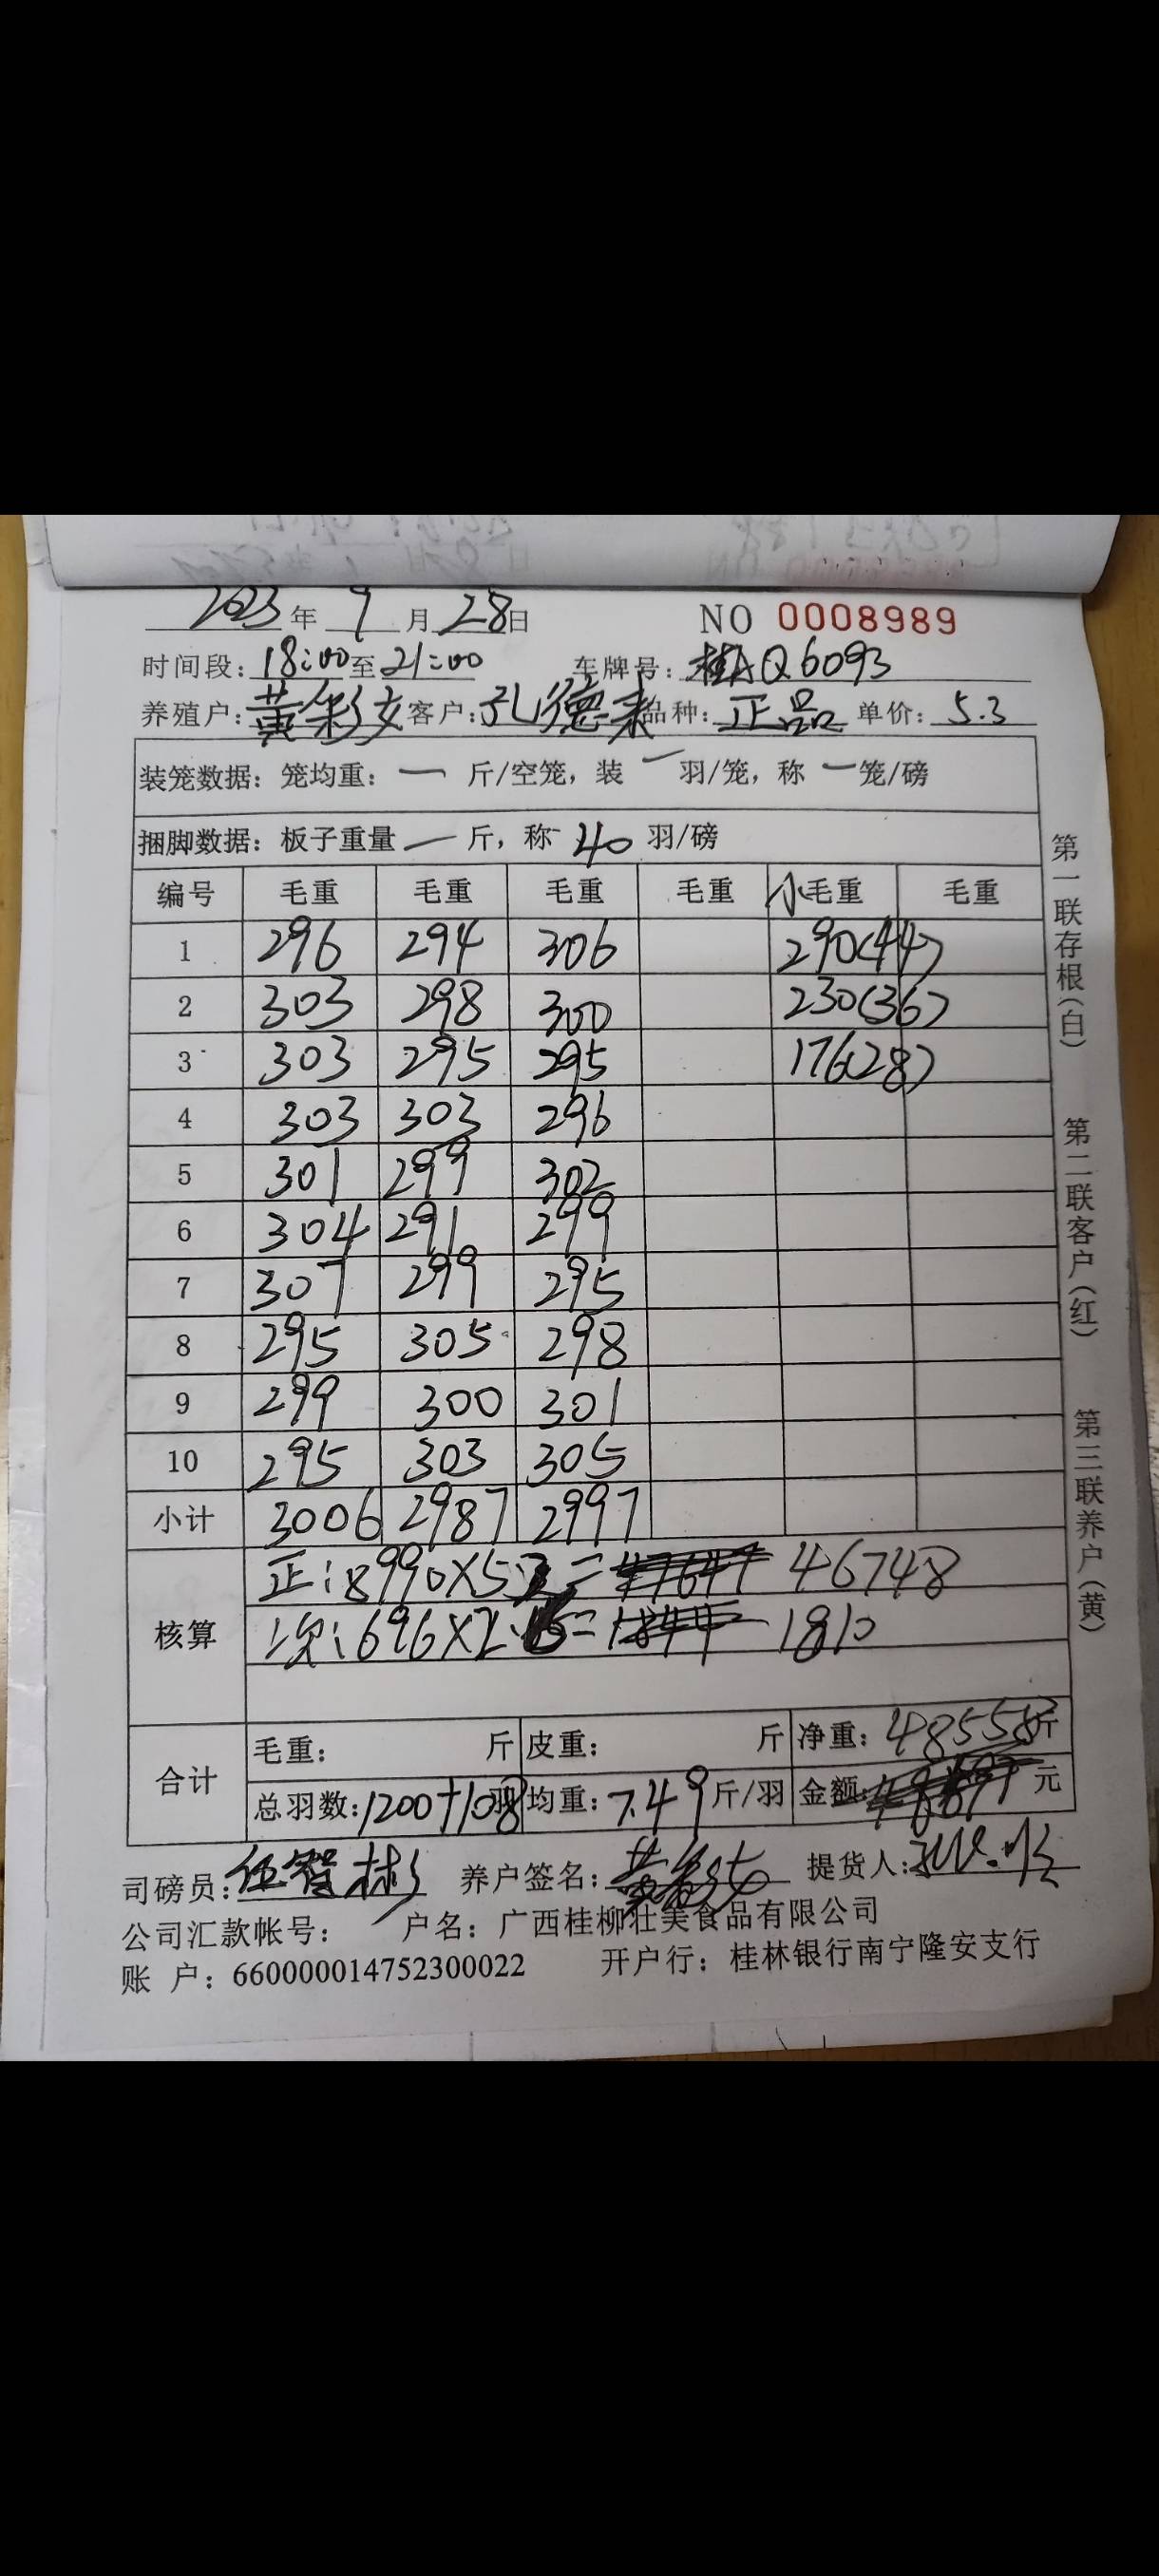 2023年9月28日 NO 0008989
时间段：18:00至21:00 车牌号：桂AQ6093
养殖户：黄彩女 客户：孔德来 品种：正品 单价：5.3
装笼数据：笼均重：一 斤/空笼，装 一 羽/笼，称 一 笼/磅
捆脚数据：板子重量 一 斤，称 40 羽/磅
编号 毛重 毛重 毛重 毛重 小毛重 毛重
1 296 294 306 290(44)
2 303 298 300 230(36)
3 303 295 295 176(28)
4 303 303 296
5 301 299 302
6 304 291 299
7 307 299 295
8 295 305 298
9 299 300 301
10 295 303 305
小计 3006 2987 2997
核算
正：8990×5.2= 46748
次：696×2.6= 1810
合计
毛重： 斤 皮重： 斤 净重：48558斤
总羽数：1200+108羽 均重：7.49斤/羽 金额： 元
司磅员：伍智彬 养户签名：黄彩女 提货人：
公司汇款帐号： 户名：广西桂柳壮美食品有限公司
账 户：660000014752300022 开户行：桂林银行南宁隆安支行
第一联存根（白） 第二联客户（红） 第三联养户（黄）